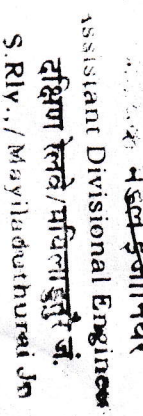 मंडल इंजीनियर
Assistant Divisional Engineer
दक्षिण रेलवे/मयिलाडुतुरै जं.
S.Rly.,/Mayiladuthurai Jn